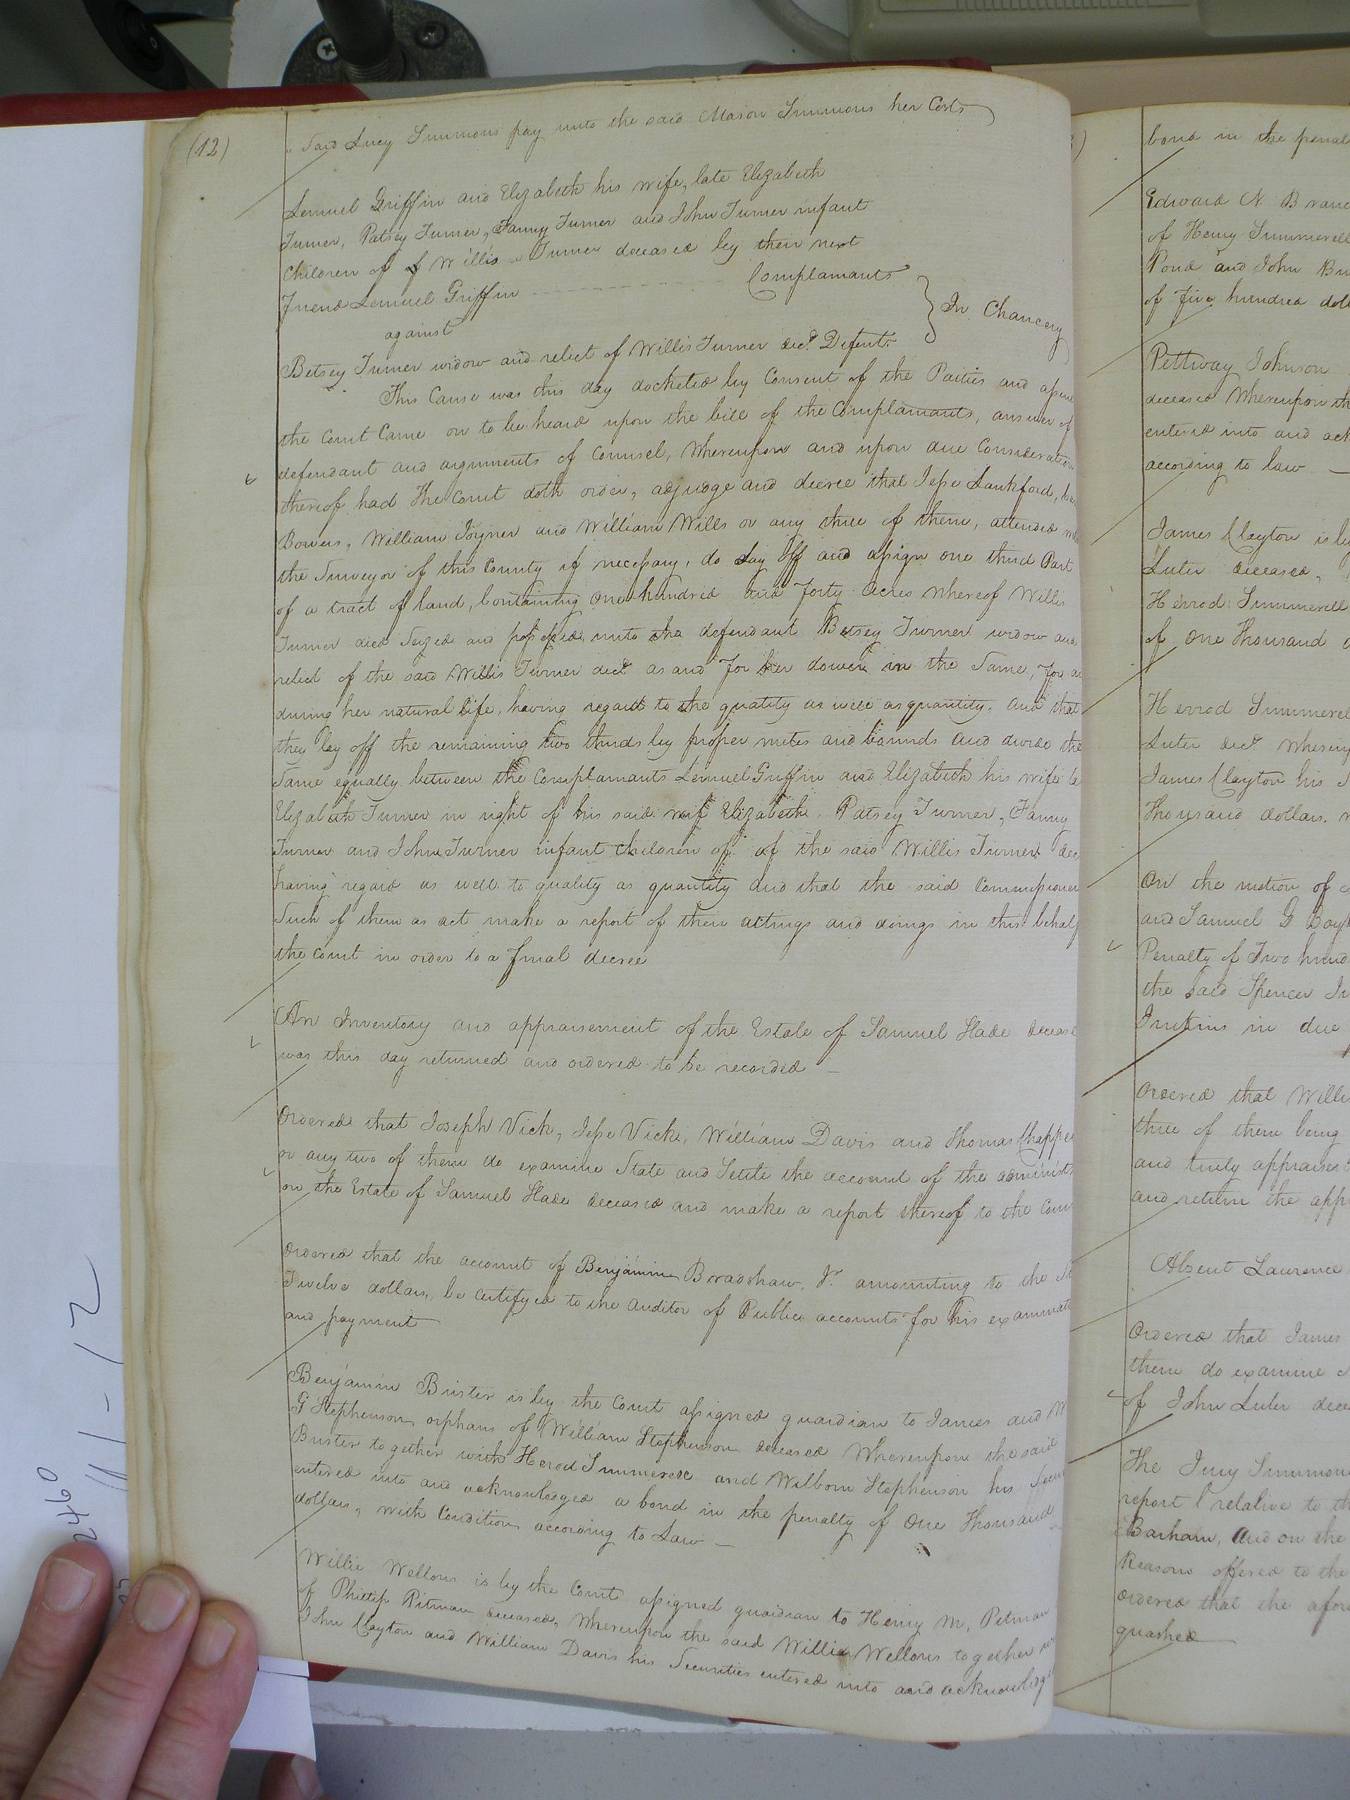 (12)
Said Lucy Simmons pay unto the said Mason Simmons her Costs
Lemuel Griffin and Elizabeth his wife, late Elizabeth
Turner, Patsey Turner, Fanny Turner and John Turner infant
Children of of Willis Turner deceased by their next
Friend Lemuel Griffin Complainants
against } In Chancery
Betsey Turner widow and relict of Willis Turner decd. Defent.
This Cause was this day docketed by Consent of the Parties and
the Court Came on to be heard upon the bill of the Complainants, answer of
defendant and arguments of Counsel, Whereupon and upon due Consideration
thereof had The Court doth order, adjudge and decree that Jesse Lankford,
Bowers, William Joyner and William Wills or any three of them, attended
the Surveyor of this County if necessary, do Lay Off and assign one third Part
of a tract of land, Containing One hundred and Forty Acres whereof Willis
Turner died Seized and possessed, unto the defendant Betsey Turner widow and
relict of the said Willis Turner decd. as and for her dower in the Same, for
during her natural life, having regard to the quality as well as quantity. And that
they lay off the remaining two thirds by proper metes and bounds and divide the
Same equally between the Complainants Lemuel Griffin and Elizabeth his wife
Elizabeth Turner in right of his said wife Elizabeth, Patsey Turner, Fanny
Turner and John Turner infant Children of of the said Willis Turner
having regard as well to quality as quantity and that the said Commissioners
Such of them as act make a report of their actings and doings in this behalf
the Court in order to a final decree
An Inventory and appraisement of the Estate of Samuel Slade
was this day returned and ordered to be recorded —
Ordered that Joseph Vick, Jesse Vick, William Davis and Thomas
or any two of them do examine State and Settle the account of the
on the Estate of Samuel Slade deceased and make a report thereof to the
Ordered that the account of Benjamin Bradshaw, Jr. amounting to the
Twelve dollars, be Certifyed to the Auditor of Public accounts for his
and payment
Benjamin Brister is by the Court assigned guardian to James and
G Stephenson orphans of William Stephenson deceased Whereupon the said
Brister together with Herod Simmerell and Wilborn Stephenson his
entered into and acknowledged a bond in the penalty of One Thousand
dollars, with Condition according to Law —
Willie Wellons is by the Court assigned guardian to Henry M. Pitman
of Phillip Pitman deceased, Whereupon the said Willie Wellons together
John Clayton and William Davis his Securities entered into and
bond in the
Edward N.
of Henry Simmerell
Pond and John
of Five hundred
Pettway Johnson
deceased Whereupon
entered into and
according to law —
James Clayton is
Luter deceased,
Herrod Simmerell
of One Thousand
Herrod
Luter decd.
James Clayton his
Thousand dollars.
On the motion of
and Samuel G
Penalty of Two
the said Spencer
in due
Ordered that
three of them being
and truly
and return the
Absent Lawrence
Ordered that James
them do examine
of John Luter
The Jury
report relative to
Barham, And on the
Reasons offered to the
Ordered that the
quashed
2460
11-12